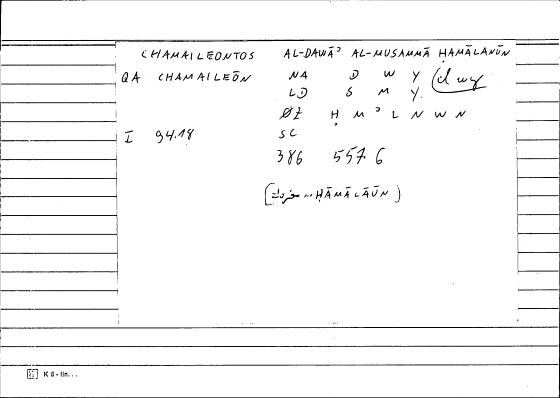 CHAMAILEONTOS AL-DAWĀʾ AL-MUSAMMĀ ḤAMĀLANŪN
QA CHAMAILEŌN NA D W Y (dwy
LD S M Y.
ØZ Ḥ M ʾ L N W N
I 94.18 SC
386 557 6
HĀMĀLĀŪN )
K 6 - lin...